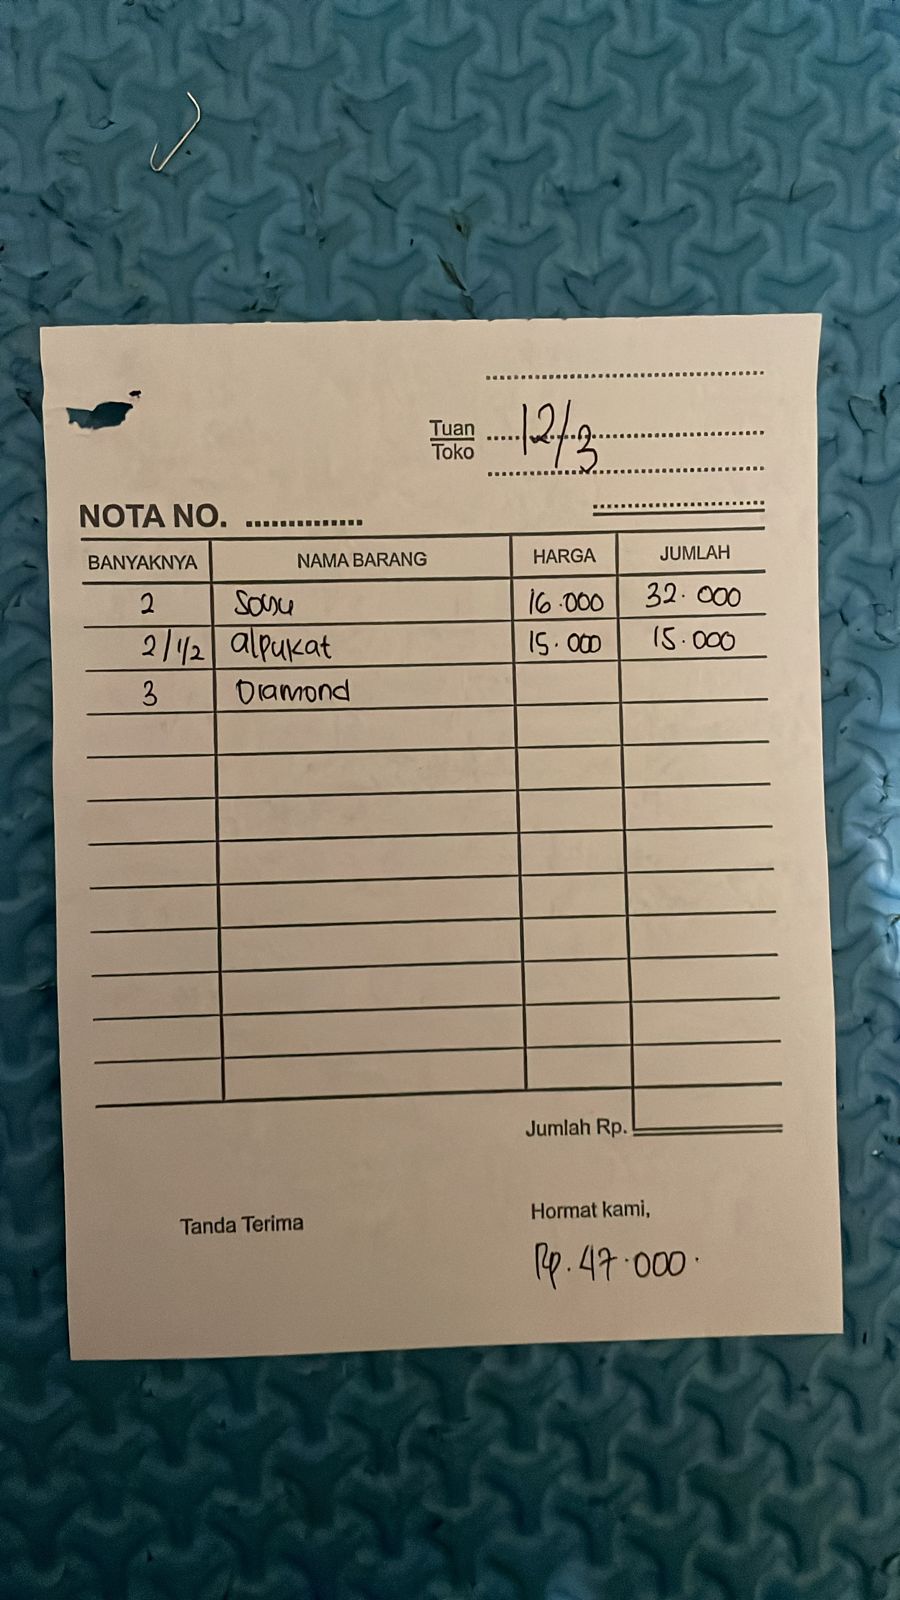 Tuan
Toko
12/3
NOTA NO.
BANYAKNYA NAMA BARANG HARGA JUMLAH
2 Sosu 16.000 32.000
2/1/2 alpukat 15.000 15.000
3 Diamond
Jumlah Rp.
Tanda Terima Hormat kami,
Rp. 47.000.